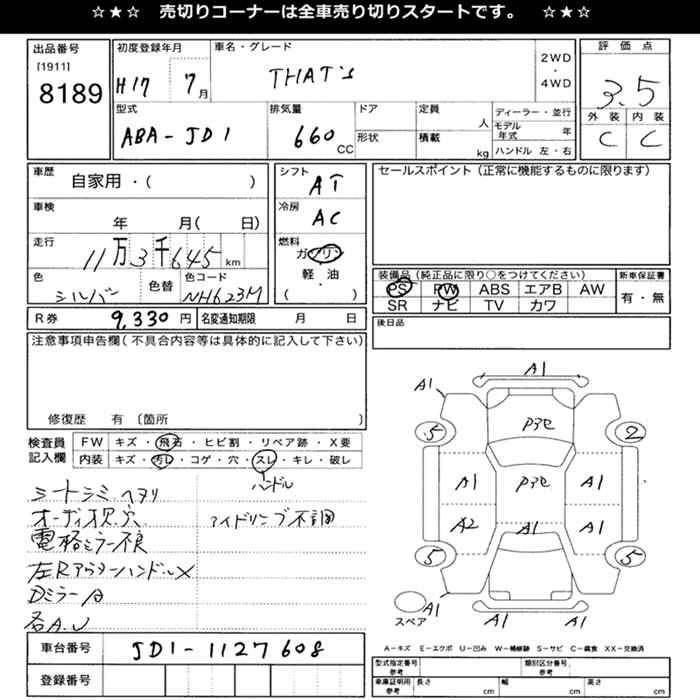 ☆★☆ 売切りコーナーは全車売り切りスタートです。 ☆★☆
出品番号
[1911]
8189
初度登録年月
H17 7月
車名・グレード
THAT's
2WD
・
4WD
評価点
3.5
外装 内装
C C
型式
ABA-JD1
排気量
660 CC
ドア
形状
定員
人
積載
kg
ディーラー・並行
モデル年式 年
ハンドル 左・右
車歴
自家用・( )
車検
年 月( 日)
走行
11万3千645 km
色
シルバー
色替
色コード
NH623M
シフト
AT
冷房
AC
燃料
ガソリン
軽・油
( )
セールスポイント(正常に機能するものに限ります)
装備品(純正品に限り○をつけてください)
PS PW ABS エアB AW
SR ナビ TV カワ
新車保証書
有・無
R券 9,330円 名変通知期限 月 日
後日品
注意事項申告欄(不具合内容等は具体的に記入して下さい)
修復歴 有 〔箇所 〕
検査員
記入欄
FW キズ・飛石・ヒビ割・リペア跡・X要
内装 キズ・汚レ・コゲ・穴・スレ・キレ・破レ
ハンドル
シートシミ、ヘタリ
オーディオ欠、穴
アイドリング不調
電格ミラー不良
左Rアウターハンドル×
DミラーA
各A.U
A1
A1
P3セ
5
2
A1
P3セ
A1
A2
A1
A1
5
5
スペア
A1
A1
A1
A-キズ E-エクボ U-凹み W-補修跡 S-サビ C-腐食 XX-交換済
車台番号 JD1-1127608
登録番号
型式指定番号 参考
類別区分番号 参考
車庫証明用 参考
長さ cm
幅 cm
高さ cm